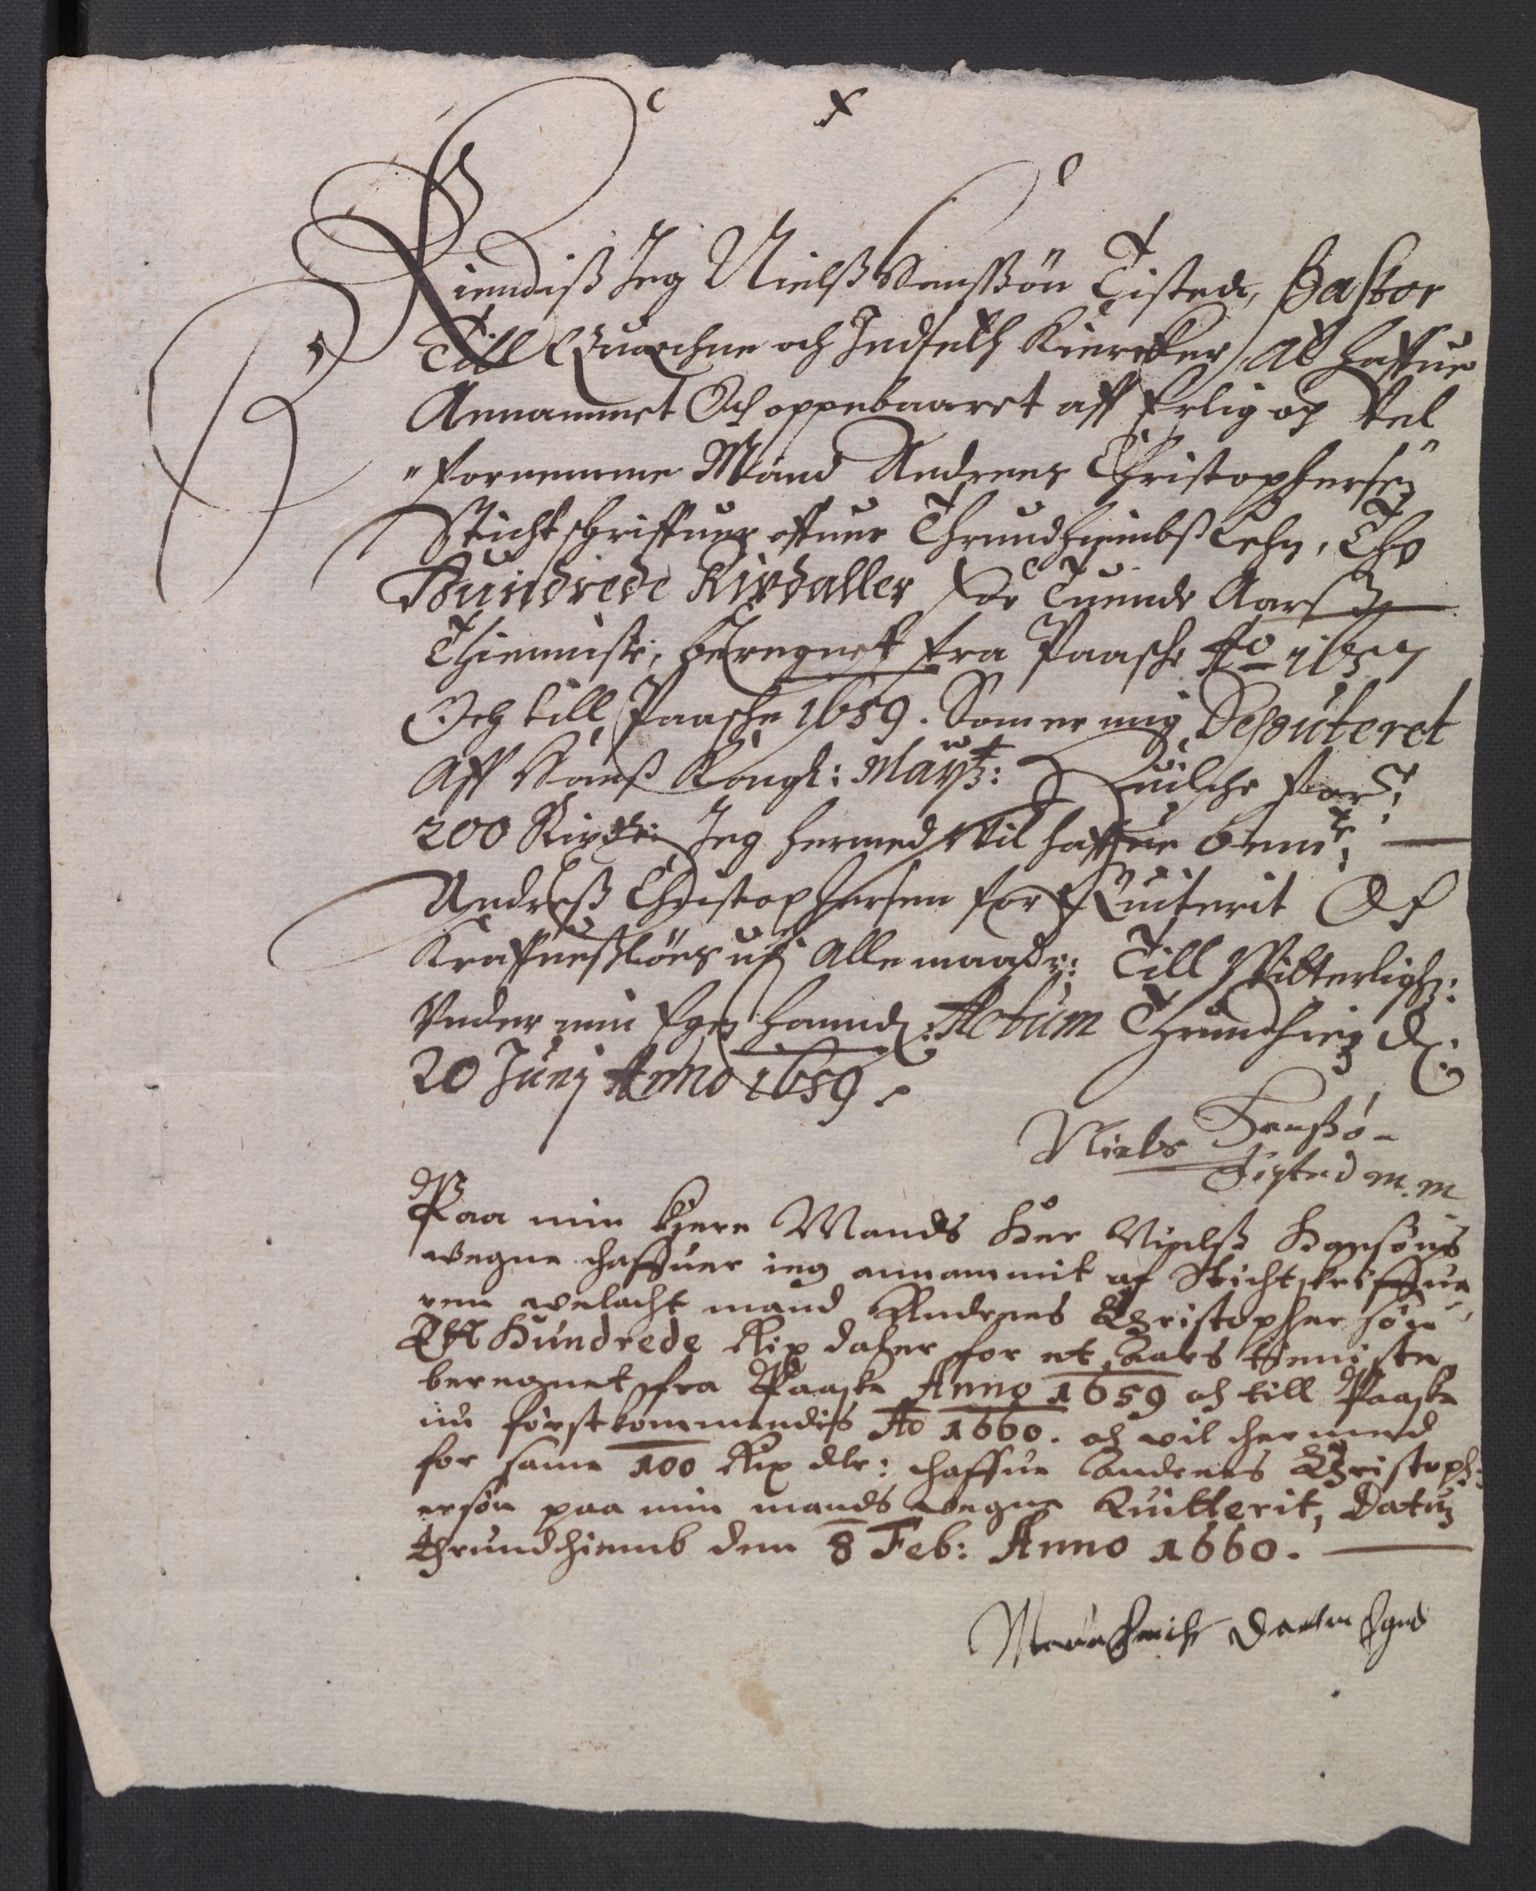 x
Kiendiß Jeg Nielß Hanßøn Tisted, Pastor
Till Quærne och Indseth Kiercker, At haffue
Annammet Och oppebaaret aff Erlig og Vel
fornemme Mand Andrees Christophersøn
Stichtschriffuer offuer Thrundhiembß Lehn, Tho
Hundrede Rixdaller for Tuende Aarß
Thienniste, beregnet fra Paasche Ao 1657
Och till Paasche 1659. Som er mig Deputeret
Aff Hanß Kongl: Maytz: Huilche for:t
200 Rixdr: Jeg hermed Vil haffue bemte:
Andreß Christophersen for Quiterit Och
Kraffueßløes udj Alle maader: Till Vitterlighed:
Vnder min Egen haand: Actum Thrundhiem d:
20 Junj Anno 1659.
Niels Hanßøn
Tisted m.m
Paa min kjere Mands Her Nielß Hansøns
wegne haffuer ieg annammit af Stichtskriffue
ren welacht mand Andrees Christophersøn
Et Hundrede Rix daler for et Aars tieniste
beregnet fra Paaske Anno 1659 och till Paaske
nu førstkommendis Ao 1660. och vil hermed
for same 100 Rix dlr: haffue Andrees Christoph:
ersøn paa min mands wegne Quitterit, Datum
Thrundhiemb den 8 Feb: Anno 1660.